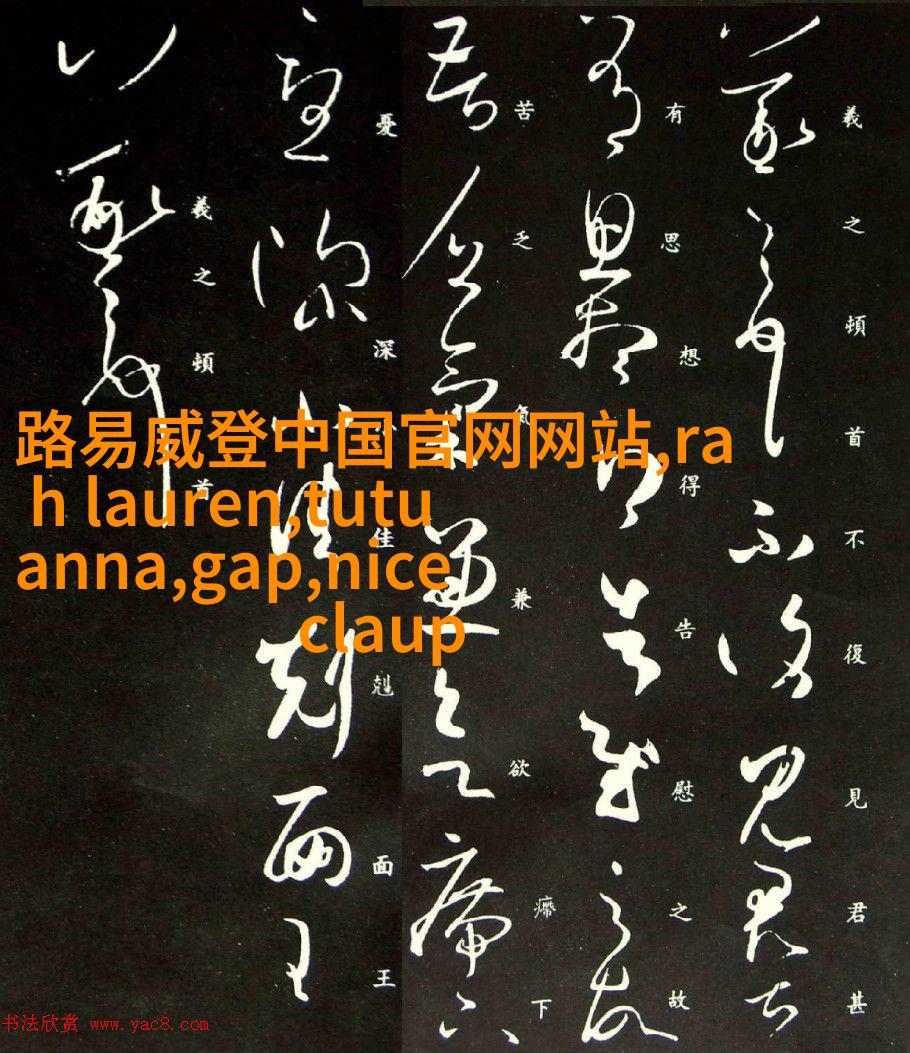 羲之頓首不復見君甚
有思想得告慰之故
苦乏氣兼欲㿃下
憂深佳剋面王
羲之頓首
路易威登中国官网网站,ra
h lauren,tutu
anna,gap,nice
claup
书法欣赏 www.yac8.com